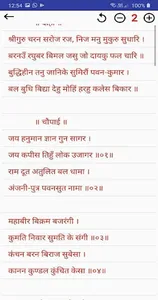 12:54
92%
2
॥ दोहा ॥
श्रीगुरु चरन सरोज रज, निज मनु मुकुरु सुधारि ।
बरनउँ रघुबर बिमल जसु जो दायकु फल चारि ॥
बुद्धिहीन तनु जानिके सुमिरौं पवन-कुमार ।
बल बुधि बिद्या देहु मोहिं हरहु कलेस बिकार ॥
॥ चौपाई ॥
जय हनुमान ज्ञान गुन सागर ।
जय कपीस तिहुँ लोक उजागर ॥०१॥
राम दूत अतुलित बल धामा ।
अंजनी-पुत्र पवनसुत नामा ॥०२॥
महाबीर बिक्रम बजरंगी ।
कुमति निवार सुमति के संगी ॥०३॥
कंचन बरन बिराज सुबेसा ।
कानन कुण्डल कुंचित केसा ॥०४॥